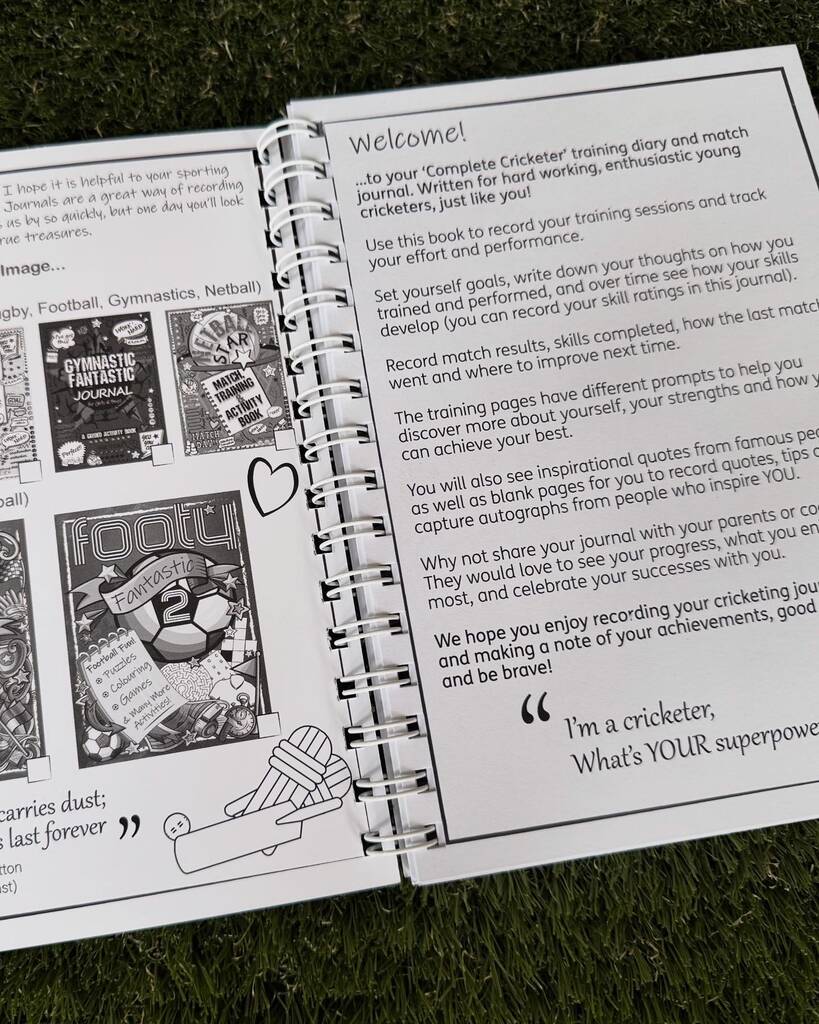 I hope it is helpful to your sporting
Journals are a great way of recording
us by so quickly, but one day you'll look
true treasures.
Image...
gby, Football, Gymnastics, Netball)
WORK HARD
GYMNASTIC
FANTASTIC
JOURNAL
A GUIDED ACTIVITY BOOK
Perfect!
NETBALL
STAR
MATCH
TRAINING
& ACTIVITY
BOOK
ball)
footy
Fantastic
2
Football Fun!
Puzzles
Colouring
Games
& Many More
Activities!
carries dust;
s last forever ”
tton
st)
Welcome!
...to your ‘Complete Cricketer’ training diary and match
journal. Written for hard working, enthusiastic young
cricketers, just like you!
Use this book to record your training sessions and track
your effort and performance.
Set yourself goals, write down your thoughts on how you
trained and performed, and over time see how your skills
develop (you can record your skill ratings in this journal).
Record match results, skills completed, how the last match
went and where to improve next time.
The training pages have different prompts to help you
discover more about yourself, your strengths and how y
can achieve your best.
You will also see inspirational quotes from famous peo
as well as blank pages for you to record quotes, tips o
capture autographs from people who inspire YOU.
Why not share your journal with your parents or co
They would love to see your progress, what you en
most, and celebrate your successes with you.
We hope you enjoy recording your cricketing jour
and making a note of your achievements, good
and be brave!
“ I'm a cricketer,
What's YOUR superpowe